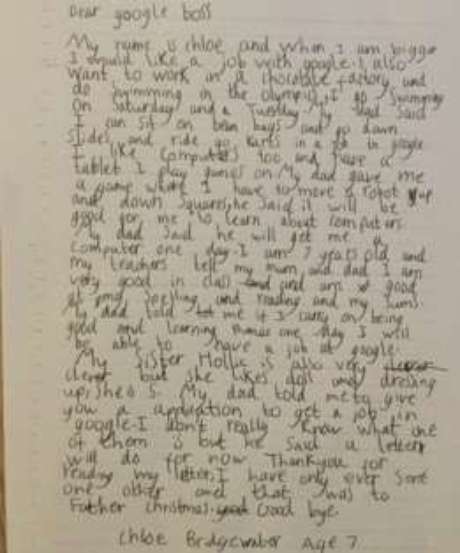 Dear google boss
My name is Chloe and when I am bigger
I would like a job with google. I also
want to work in a chocolate factory and
do swimming in the olympics. I go Swimming
on Saturday and a Tuesday. My dad said
I can sit on bean bags and go down
slides and ride go karts in a job in google.
I like computers too and have a
tablet I play games on. My dad gave me
a game where I have to move a robot up
and down squares, he said it will be
good for me to learn about computers.
My dad said he will get me a
computer one day. I am 7 years old and
my teachers tell my mum and dad I am
very good in class and am good
at my spelling and reading and my sums.
My dad told me if I carry on being
good and learning one day I will
be able to have a job at google.
My sister Hollie is also very
clever but she likes doll and dressing
up, she is 5. My dad told me to give
you a application to get a job in
google. I don't really know what one
of them is but he said a letter
will do for now. Thankyou for
reading my letter, I have only ever sent
one other and that was to
Father christmas. Good bye.
Chloe Bridgewater Age 7